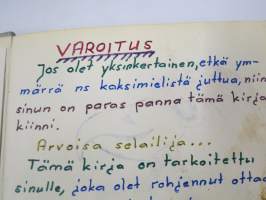 VAROITUS
Jos olet yksinkertainen, etkä ym-
märrä ns kaksimielistä juttua, niin
sinun on paras panna tämä kirja
kiinni.
Arvoisa selailija...
Tämä kirja on tarkoitettu
sinulle, joka olet rohjennut ottaa